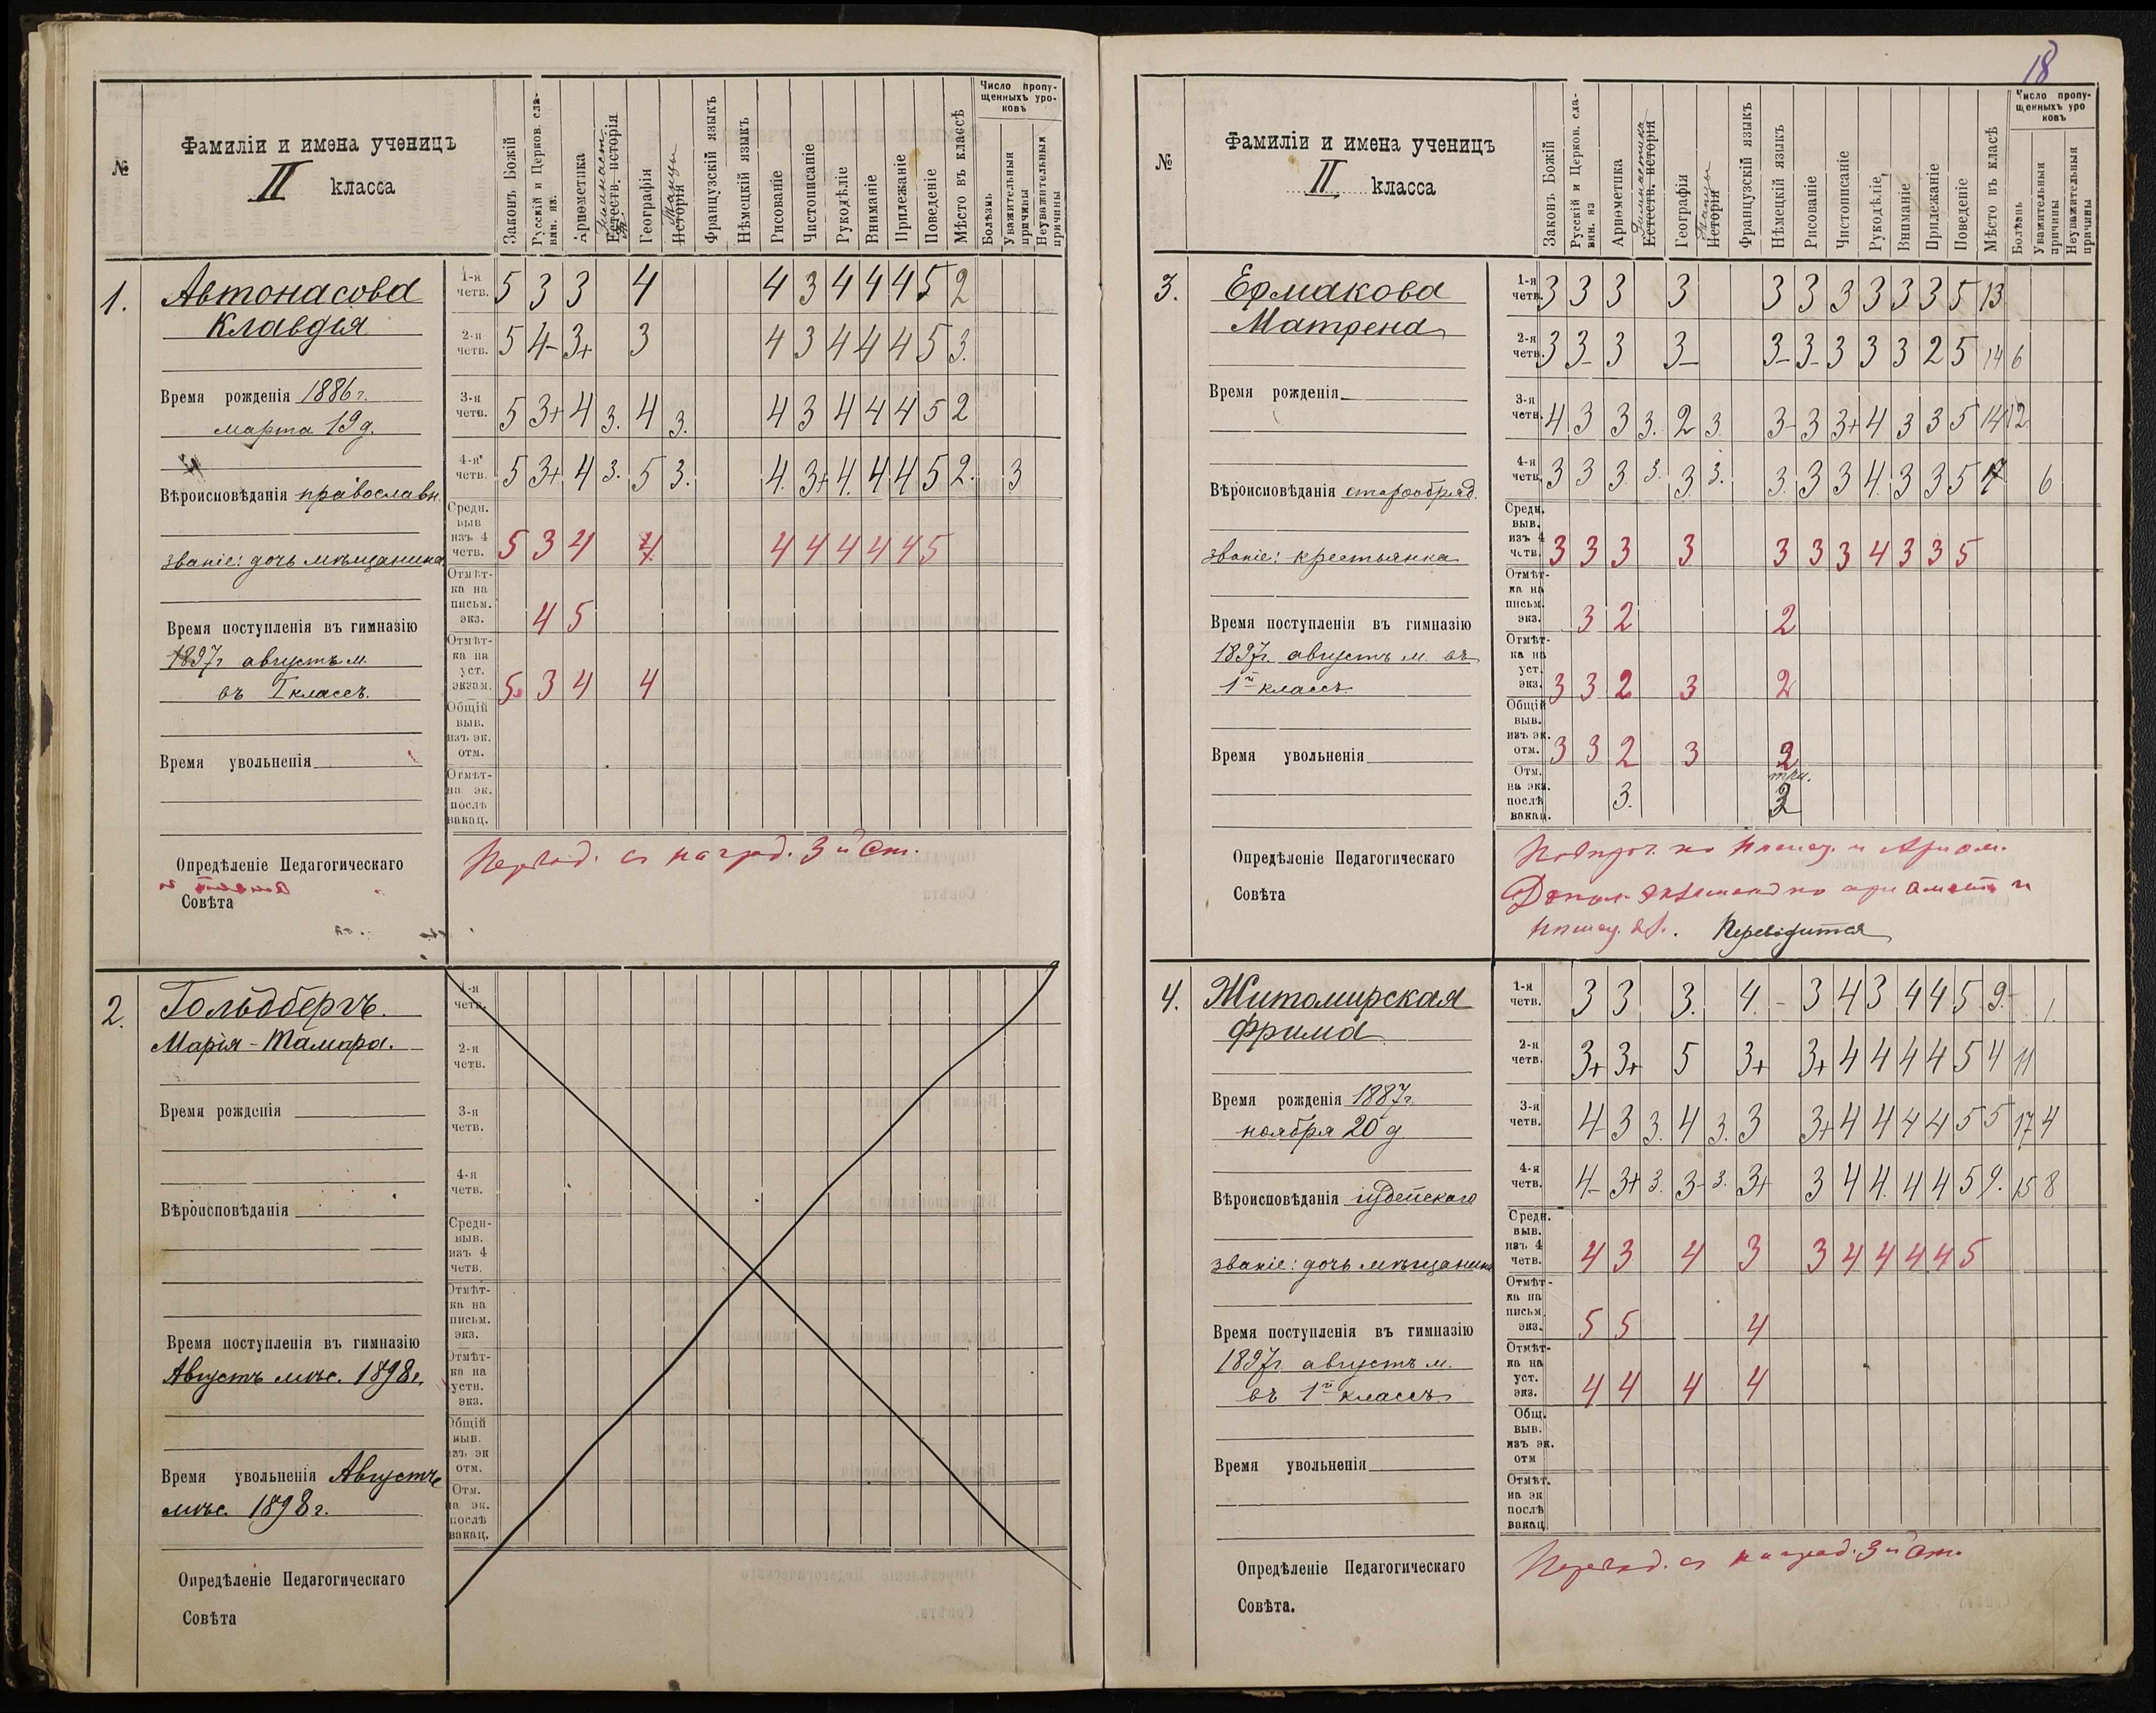 №
Фамиліи и имена ученицъ
II класса
Законъ Божій
Русскій и Церков. сла-
вян. яз.
Ариѳметика
Гимнаст.
Естеств. исторія
Географія
Танцы
Исторія
Французскій языкъ
Нѣмецкій языкъ
Рисованіе
Чистописаніе
Рукодѣліе
Вниманіе
Прилежаніе
Поведеніе
Мѣсто въ классѣ
Число пропу-
щенныхъ уро-
ковъ
Болѣзнь
Уважительныя
причины
Неуважительныя
причины
1.
Автонасова
Клавдія
Время рожденія 1886 г.
марта 19 д.
Вѣроисповѣданія православн.
званіе: дочь мѣщанина
Время поступленія въ гимназію
1897 г. августъ м.
въ I классъ.
Время увольненія
Опредѣленіе Педагогическаго
Совѣта
1-я четв. 5 3 3 4 4 3 4 4 4 5 2
2-я четв. 5 4- 3+ 3 4 3 4 4 4 5 3.
3-я четв. 5 3+ 4 3. 4 3. 4 3 4 4 4 5 2
4-я четв. 5 3+ 4 3. 5 3. 4. 3+ 4. 4 4 5 2. 3
Средн. выв изъ 4 четв. 5 3 4 4 4 4 4 4 4 5
Отмѣт-ка на письм. экз. 4 5
Отмѣт-ка на уст. экзам. 5 3 4 4
Общій выв. изъ эк. отм.
Отмѣт-на эк. послѣ вакац.
Перевод. съ наград. 3й ст.
2.
Гольдбергъ.
Марія-Тамара.
Время рожденія
Вѣроисповѣданія
Время поступленія въ гимназію
Августъ мѣс. 1898 г.
Время увольненія Августъ
мѣс. 1898 г.
Опредѣленіе Педагогическаго
Совѣта
1-я четв.
2-я четв.
3-я четв.
4-я четв.
Средн-выв. изъ 4 четв.
Отмѣт-ка на письм. экз.
Отмѣт-ка на устн. экз.
Общій выв. изъ эк отм.
Отм. на эк. послѣ вакац.
18
№
Фамиліи и имена ученицъ
II класса
Законъ Божій
Русскій и Церков. сла-
вян. яз
Ариѳметика
Гимнастика
Естеств. исторія
Географія
Танцы
Исторія
Французскій языкъ
Нѣмецкій языкъ
Рисованіе
Чистописаніе
Рукодѣліе
Вниманіе
Прилежаніе
Поведеніе
Мѣсто въ класѣ
Число пропу-
щенныхъ уро
ковъ
Болѣзнь
Уважительныя
причины
Неуважительныя
причины
3.
Ермакова
Матрена
Время рожденія
Вѣроисповѣданія старообряд.
званіе: крестьянка
Время поступленія въ гимназію
1897 г. августъ м. въ
1й классъ
Время увольненія
Опредѣленіе Педагогическаго
Совѣта
1-я четв. 3 3 3 3 3 3 3 3 3 3 5 13
2-я четв. 3 3- 3 3- 3- 3- 3 3 3 2 5 14 6
3-я четв. 4 3 3 3. 2 3. 3- 3 3+ 4 3 3 5 14 12
4-я четв. 3 3 3. 3. 3. 3. 3. 3 3 4. 3 3 5 6
Средн. выв. изъ 4 четв. 3 3 3 3 3 3 3 4 3 3 5
Отмѣт-ка на письм. экз. 3 2 2
Отмѣт-ка на уст. экз. 3 3 2 3 2
Общій выв. изъ эк. отм. 3 3 2 3 2
три.
Отм. на экз. послѣ вакац. 3. 3
по Нѣмец. и Ариѳм.
экзамен по ариѳмет и
Нѣмец. яз. Переводится
4.
Житомирская
Фрима
Время рожденія 1887 г.
ноября 20 д
Вѣроисповѣданія іудейскаго
званіе: дочь мѣщанина
Время поступленія въ гимназію
1897 г. августъ м.
въ 1й классъ
Время увольненія
Опредѣленіе Педагогическаго
Совѣта.
1-я четв. 3 3 3. 4. - 3 4 3 4 4 5 9. 1
2-я четв. 3+ 3+ 5 3+ 3+ 4 4 4 4 5 4 11
3-я четв. 4 3 3. 4 3. 3 3+ 4 4 4 4 5 5 17 4
4-я четв. 4- 3+ 3. 3- 3. 3+ 3 4 4. 4 4 5 9. 15 8
Средн. выв. изъ 4 четв. 4 3 4 3 3 4 4 4 4 5
Отмѣт-ка на письм. экз. 5 5 4
Отмѣт-ка на уст. экз. 4 4 4 4
Общ. выв. изъ эк. отм
Отмѣт. на эк послѣ вакац.
Перевод. съ наград. 3й ст.